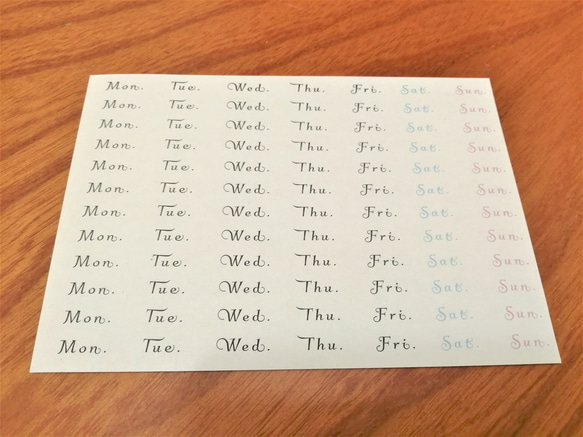 Mon. Tue. Wed. Thu. Fri. Sat. Sun.
Mon. Tue. Wed. Thu. Fri. Sat. Sun.
Mon. Tue. Wed. Thu. Fri. Sat. Sun.
Mon. Tue. Wed. Thu. Fri. Sat. Sun.
Mon. Tue. Wed. Thu. Fri. Sat. Sun.
Mon. Tue. Wed. Thu. Fri. Sat. Sun.
Mon. Tue. Wed. Thu. Fri. Sat. Sun.
Mon. Tue. Wed. Thu. Fri. Sat. Sun.
Mon. Tue. Wed. Thu. Fri. Sat. Sun.
Mon. Tue. Wed. Thu. Fri. Sat. Sun.
Mon. Tue. Wed. Thu. Fri. Sat. Sun.
Mon. Tue. Wed. Thu. Fri. Sat. Sun.